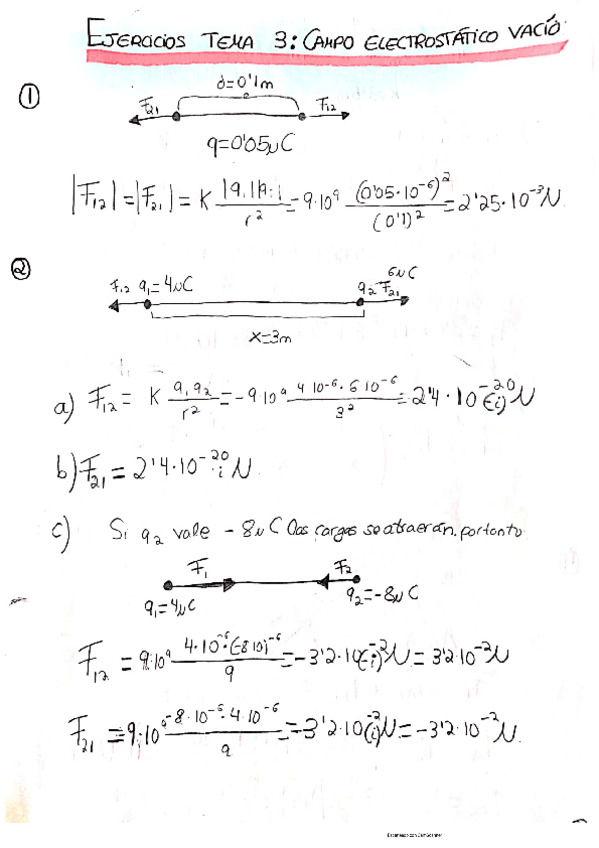 EJERCICIOS TEMA 3: CAMPO ELECTROSTÁTICO VACÍO.
①
d=0'1m
F21 F12
q=0'05μC
|F12|=|F21| = K |q1||q2| / r² = 9·10⁹ (0'05·10⁻⁶)² / (0'1)² = 2'25·10⁻³N.
②
F12 q1=4μC q2= 6μC F21
x=3m
a) F12 = K q1 q2 / r² = -9 10⁹ 4 10⁻⁶ · 6 10⁻⁶ / 3² = 2'4 · 10⁻²⁰ (-i) N
b) F21 = 2'4·10⁻²⁰ i N.
c) Si q2 vale -8μC las cargas se atraerán, por tanto
F1 F2
q1=4μC q2=-8μC
F12 = 9·10⁹ 4·10⁻⁶·(-8 10)⁻⁶ / 9 = -3'2·10⁻²(-i) N = 3'2·10⁻²N
F21 = 9·10⁹ -8·10⁻⁶·4·10⁻⁶ / 9 = -3'2·10⁻²(i) N = -3'2·10⁻² N.
Escaneado con CamScanner